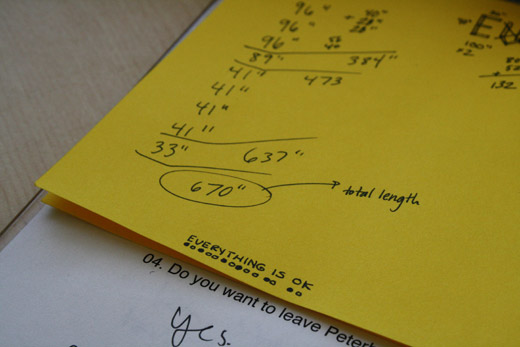 96"
96"
96"
89" 384"
41" 473
41"
41"
41"
33" 637"
670" total length
EVERYTHING IS OK
100"
x2
132
04. Do you want to leave
Yes.